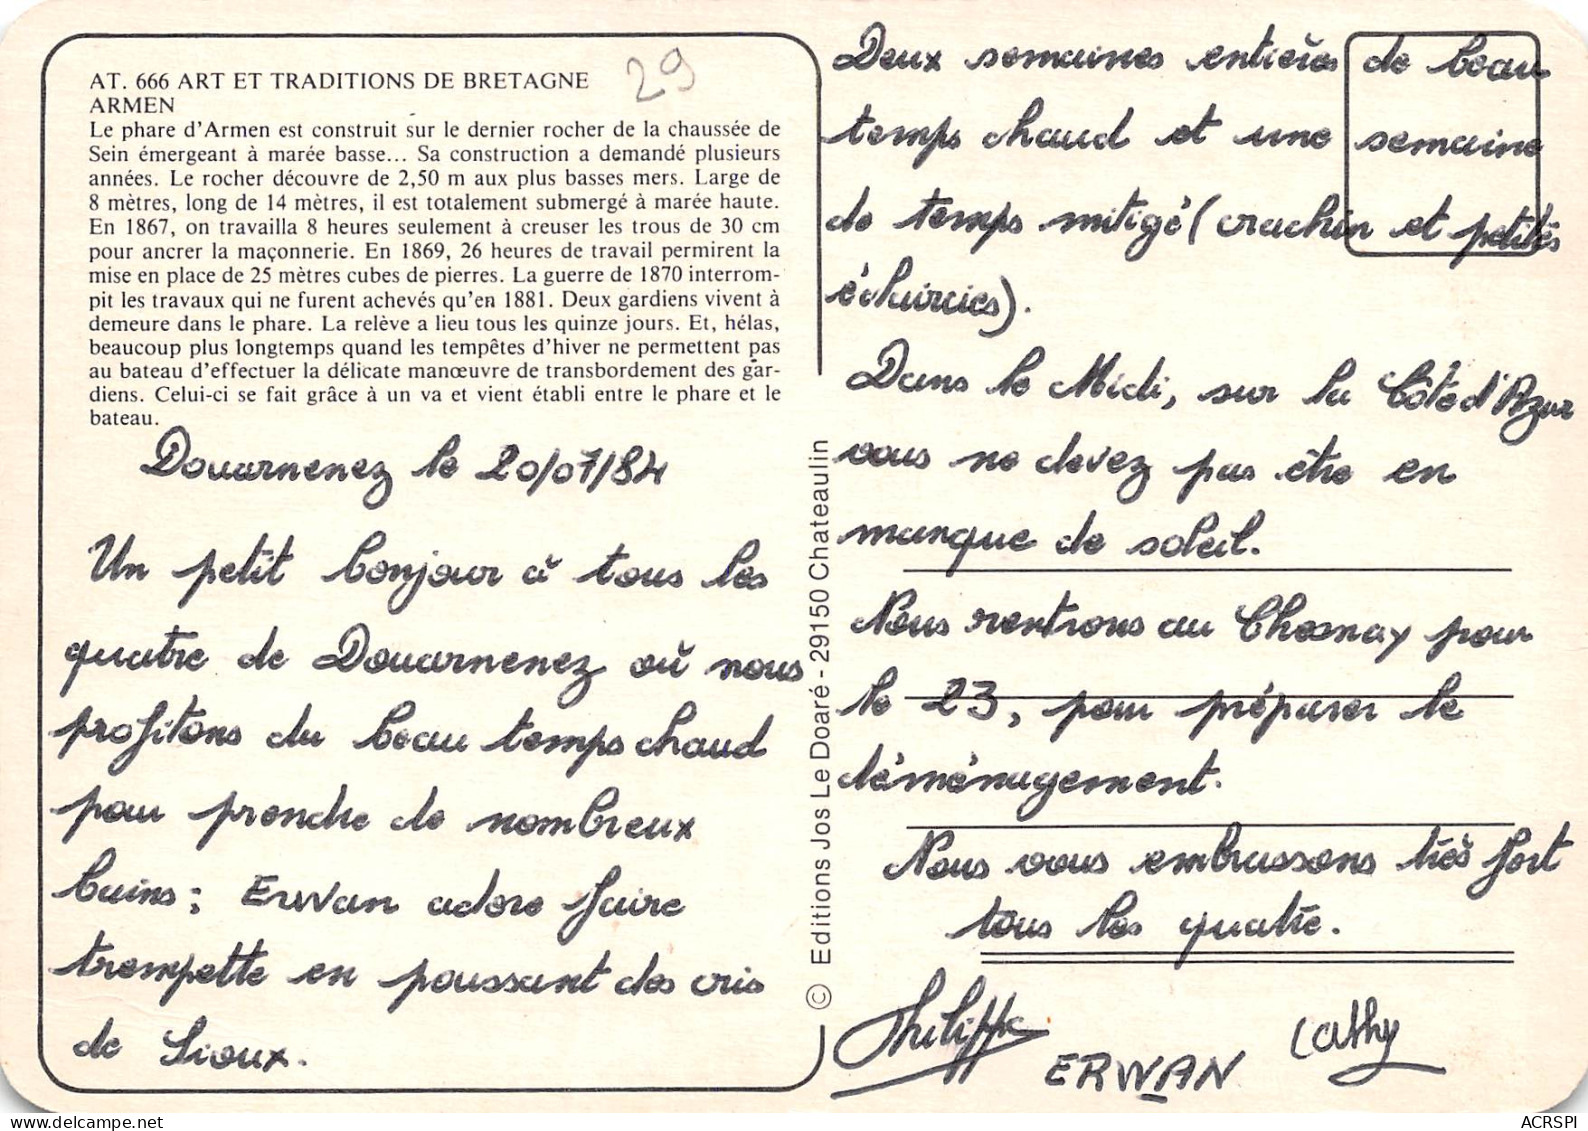 AT. 666 ART ET TRADITIONS DE BRETAGNE
ARMEN
29
Le phare d'Armen est construit sur le dernier rocher de la chaussée de
Sein émergeant à marée basse... Sa construction a demandé plusieurs
années. Le rocher découvre de 2,50 m aux plus basses mers. Large de
8 mètres, long de 14 mètres, il est totalement submergé à marée haute.
En 1867, on travailla 8 heures seulement à creuser les trous de 30 cm
pour ancrer la maçonnerie. En 1869, 26 heures de travail permirent la
mise en place de 25 mètres cubes de pierres. La guerre de 1870 interrom-
pit les travaux qui ne furent achevés qu'en 1881. Deux gardiens vivent à
demeure dans le phare. La relève a lieu tous les quinze jours. Et, hélas,
beaucoup plus longtemps quand les tempêtes d'hiver ne permettent pas
au bateau d'effectuer la délicate manœuvre de transbordement des gar-
diens. Celui-ci se fait grâce à un va et vient établi entre le phare et le
bateau.
Douarnenez le 20/07/84
Un petit bonjour à tous les
quatre de Douarnenez où nous
profitons du beau temps chaud
pour prendre de nombreux
bains ; Erwan adore faire
trempette en poussant des cris
de Sioux.
© Editions Jos Le Doaré - 29150 Chateaulin
Deux semaines entières de beau
temps chaud et une semaine
de temps mitigé (crachin et petites
éclaircies).
Dans le Midi, sur la Côte d'Azur
vous ne devez pas être en
manque de soleil.
Nous rentrons au Chesnay pour
le 23, pour préparer le
déménagement.
Nous vous embrassons très fort
tous les quatre.
Philippe
ERWAN
Cathy
ACRSPI